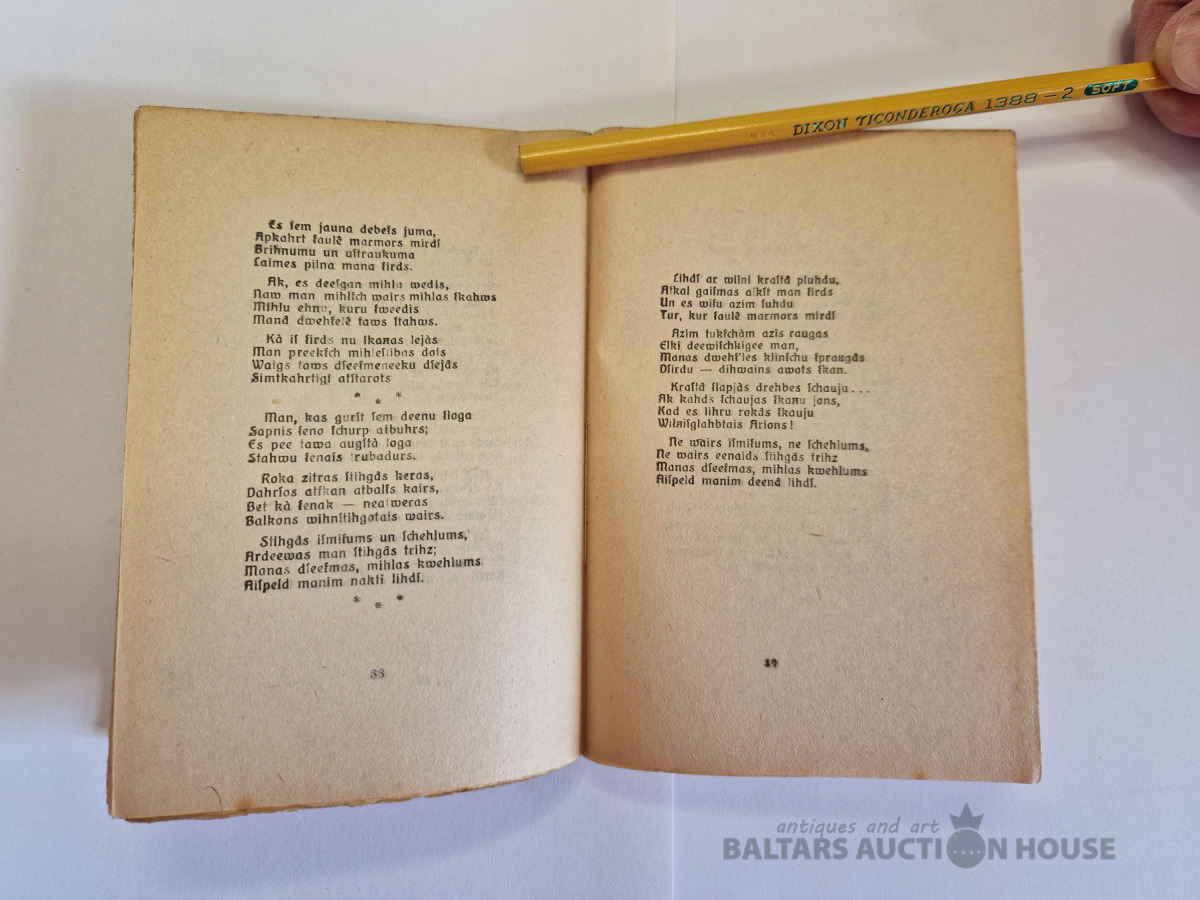 DIXON TICONDEROGA 1388 – 2 SOFT
Es ſem jauna debeſs juma,
Apkahrt ſaulê marmors mirdſ
Brihnumu un uſtraukuma
Laimes pilna mana ſirds.
Ak, es deeſgan mihla wedis,
Naw man mihlſch wairs mihlas ſkahws
Mihlu ehnu, kuru ſweedis
Manâ dwehſelê taws ſtahws.
Kà iſ ſirds nu ſkanas lejàs
Man preekſch mihleſtibas dots
Waigs taws dſeeſmeneeku dſejâs
Simtkahrtigi atſtarots
* * *
Man, kas gurſt ſem deenu ſloga
Sapnis ſeno ſchurp atbuhrs;
Es pee tawa augſtà loga
Stahwu ſenais trubadurs.
Roka zitras ſtihgâs keras,
Dahrſos atſkan atbalſs kairs,
Bet kà ſenak — neatweras
Balkons wihnſtihgotais wairs.
Stihgâs iſmiſums un ſchehlums,
Ardeewas man ſtihgâs trihz;
Manas dſeeſmas, mihlas kwehlums
Aiſpeld manim nakti lihdſ.
* * *
38
Lihdſ ar wilni kraſtâ pluhdu,
Atkal gaiſmas alkſt man ſirds
Un es wiſu azim ſuhdu
Tur, kur ſaulê marmors mirdſ
Azim tukſchàm azîs raugas
Elki deewiſchkigee man,
Manas dwehſ'les klinſchu ſpraugâs
Dſirdu — dihwains awots ſkan.
Kraſtâ ſlapjàs drehbes ſchauju . . .
Ak kahds ſchaujas ſkanu jons,
Kad es lihru rokâs ſkauju
Wilniſglahbtais Arions!
Ne wairs iſmiſums, ne ſchehlums,
Ne wairs eenaids ſtihgâs trihz
Manas dſeeſmas, mihlas kwehlums
Aiſpeld manim deenâ lihdſ.
39
antiques and art
BALTARS AUCTION HOUSE